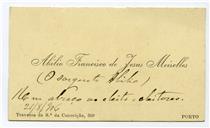 Abilio Francisco de Jesus Meirelles
(O sargento Abilio)
Um abraço ao
21/8/906
Travessa da S.ª da Conceição,
PORTO